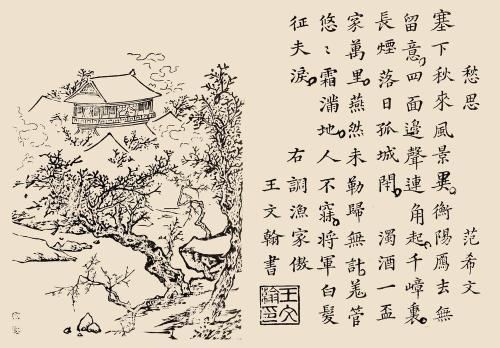 愁思 范希文
塞下秋來風景異。衡陽鴈去無
留意。四面邊聲連角起。千嶂裏。
長煙落日孤城閉。 濁酒一盃
家萬里。燕然未勒歸無計。羗管
悠〻霜滿地。人不寐。將軍白髮
征夫淚。 右調漁家傲
王文翰書
王文翰印